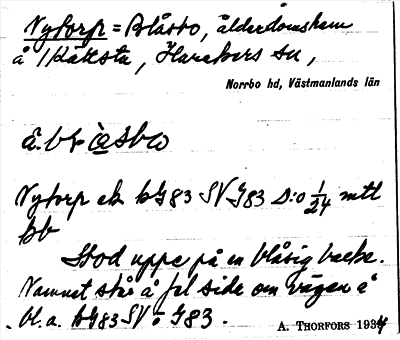 Nytorp = Blåsbo, ålderdomshem
å Kåksta, Harakers sn,
Norrbo hd, Västmanlands län
Nytorp ek kG 83 SV G 83 S:o 1/24 mtl
kb
Stod uppe på en blåsig backe.
Namnet står å fel side om vägen å
bl.a. kG 83 SV o G 83.
A. THORFORS 1934